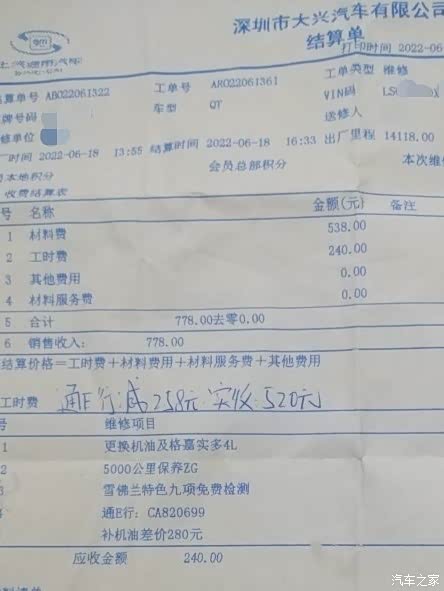 深圳市大兴汽车有限公司
结算单
上汽通用汽车
打印时间 2022-06
算单号 ABO22061322 工单号 ARO22061361 工单类型 维修
牌号码 车型 QT VIN码
修单位 送修人
厂时间 2022-06-18 13:55 结算时间 2022-06-18 16:33 出厂里程 14118.00
本地积分 会员总部积分 本次维
收费结算表
号 名称 金额(元) 备注
1 材料费 538.00
2 工时费 240.00
3 其他费用 0.00
4 材料服务费 0.00
5 合计 778.00去零0.00
6 销售收入: 778.00
结算价格=工时费+材料费用+材料服务费+其他费用
工时费 通E行:减258元 实收:520元
号 维修项目
1 更换机油及格嘉实多4L
2 5000公里保养ZG
雪佛兰特色九项免费检测
通E行: CA820699
补机油差价280元
应收金额 240.00
汽车之家